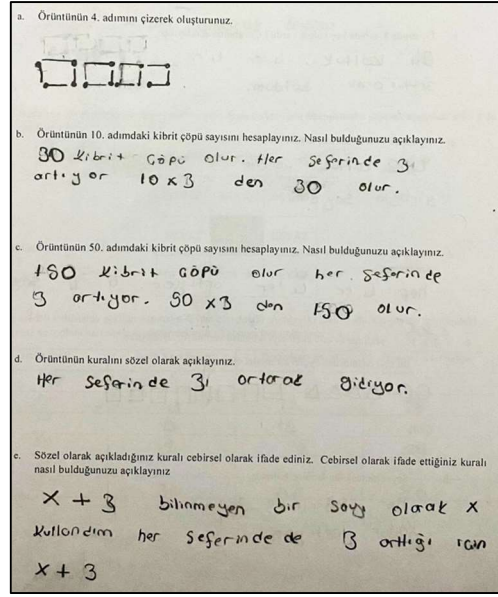 a. Örüntünün 4. adımını çizerek oluşturunuz.
b. Örüntünün 10. adımdaki kibrit çöpü sayısını hesaplayınız. Nasıl bulduğunuzu açıklayınız.
30 kibrit çöpü olur. Her seferinde 3
artıyor 10 x 3 den 30 olur.
c. Örüntünün 50. adımdaki kibrit çöpü sayısını hesaplayınız. Nasıl bulduğunuzu açıklayınız.
150 kibrit çöpü olur her seferinde
3 artıyor. 50 x3 den 150 olur.
d. Örüntünün kuralını sözel olarak açıklayınız.
Her seferinde 3, ortarak gidiyor.
e. Sözel olarak açıkladığınız kuralı cebirsel olarak ifade ediniz. Cebirsel olarak ifade ettiğiniz kuralı
nasıl bulduğunuzu açıklayınız
x + 3 bilinmeyen bir sayı olarak x
kullandım her seferinde de 3 arttığı için
x + 3